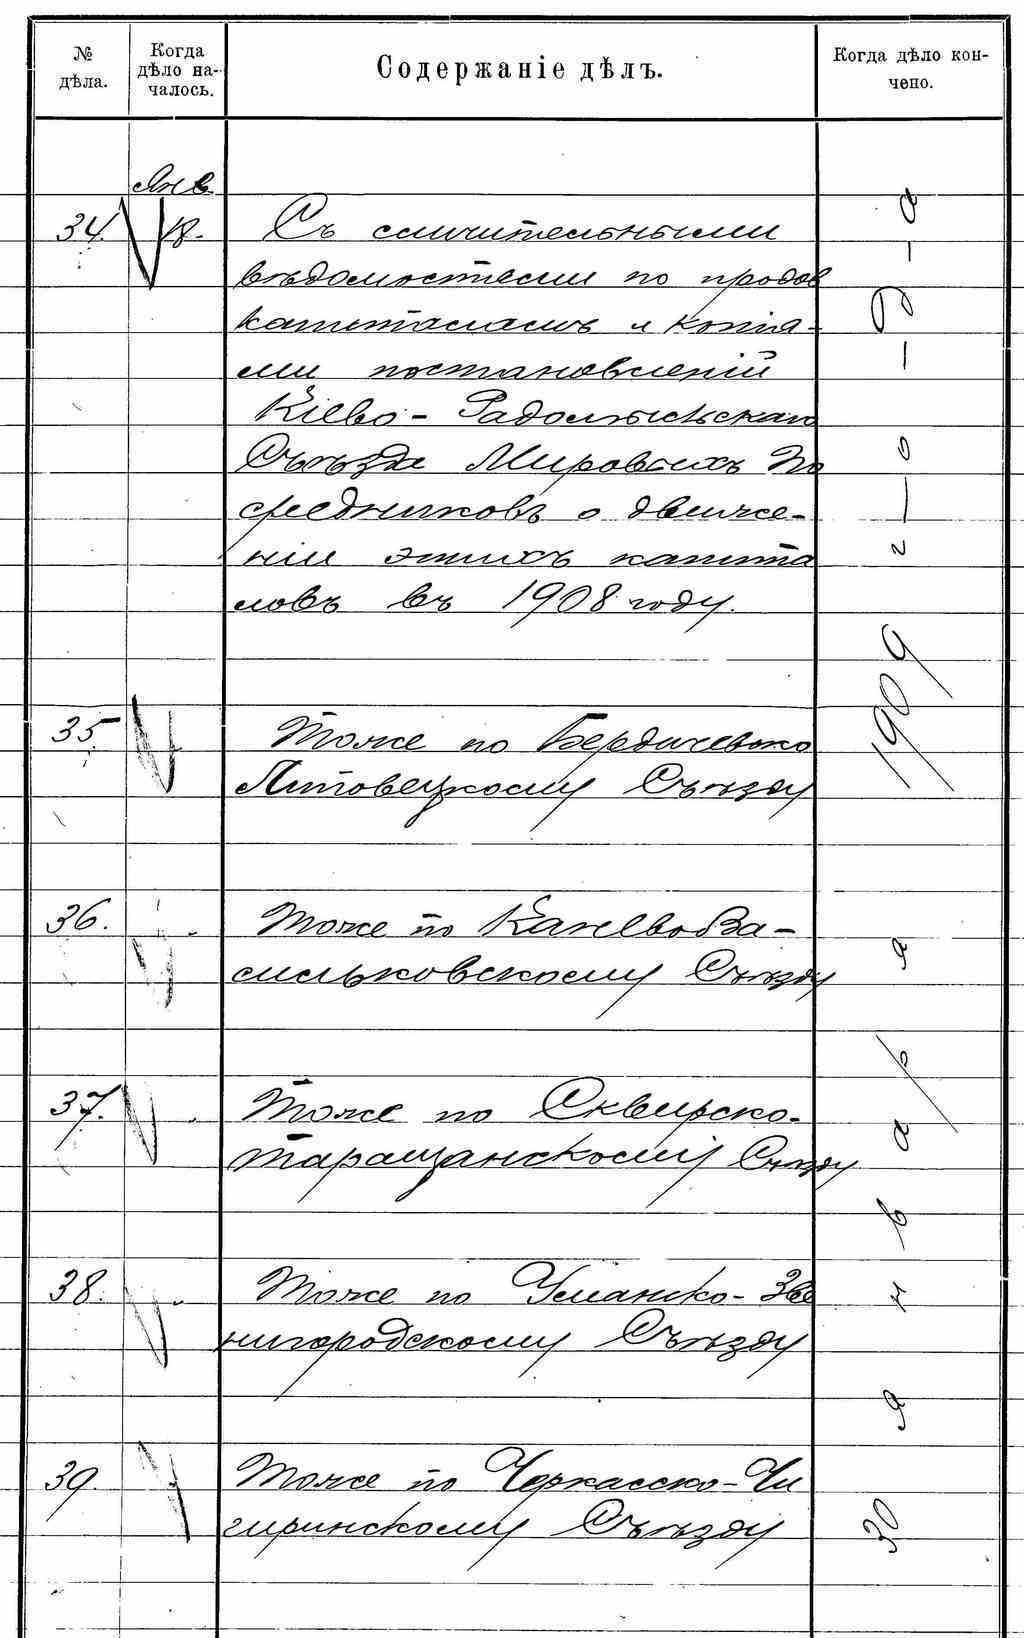 № дѣла.
Когда дѣло на-
чалось.
Содержаніе дѣлъ.
Когда дѣло кон-
чено.
Янв
34. 18.
Съ сличительными
вѣдомостями по продов
капиталамъ и копія-
ми постановленій
Кіево-Радомысльскаго
Съѣзда Мировыхъ По
средниковъ о движе-
ніи этихъ капита
ловъ въ 1908 году.
35
Тоже по Бердичевско
Липовецкому Съѣзду
36.
Тоже по КаневоВа-
сильковскому Съѣзду
37.
Тоже по Сквирско-
таращанскому Съѣзду
38.
Тоже по Уманско-Зве
нигородскому Съѣзду
39.
Тоже по Черкасско-Чи
гиринскому Съѣзду
30 января 1909 г-о-д-а